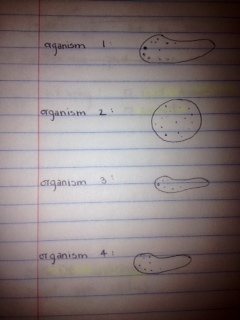 organism 1:
organism 2:
organism 3:
organism 4: